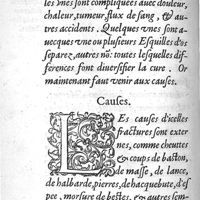 les vnes sont compliquées auec douleur,
chaleur, tumeur, flux de sang, & au-
tres accidents. Quelques vnes sont a-
uecques vne ou plusieurs Esquilles d'os
separez, autres nõ: toutes lesquelles dif-
ferences font diuersifier la cure. Or
maintenant faut venir aux causes.
Causes.
LEs causes d'icelles
fractures sont exter
nes, comme cheuttes
& coups de baston,
de masse, de lance,
de halbarde, pierres, de hacquebute, d'es
pee, morsure de bestes, & autres sem-